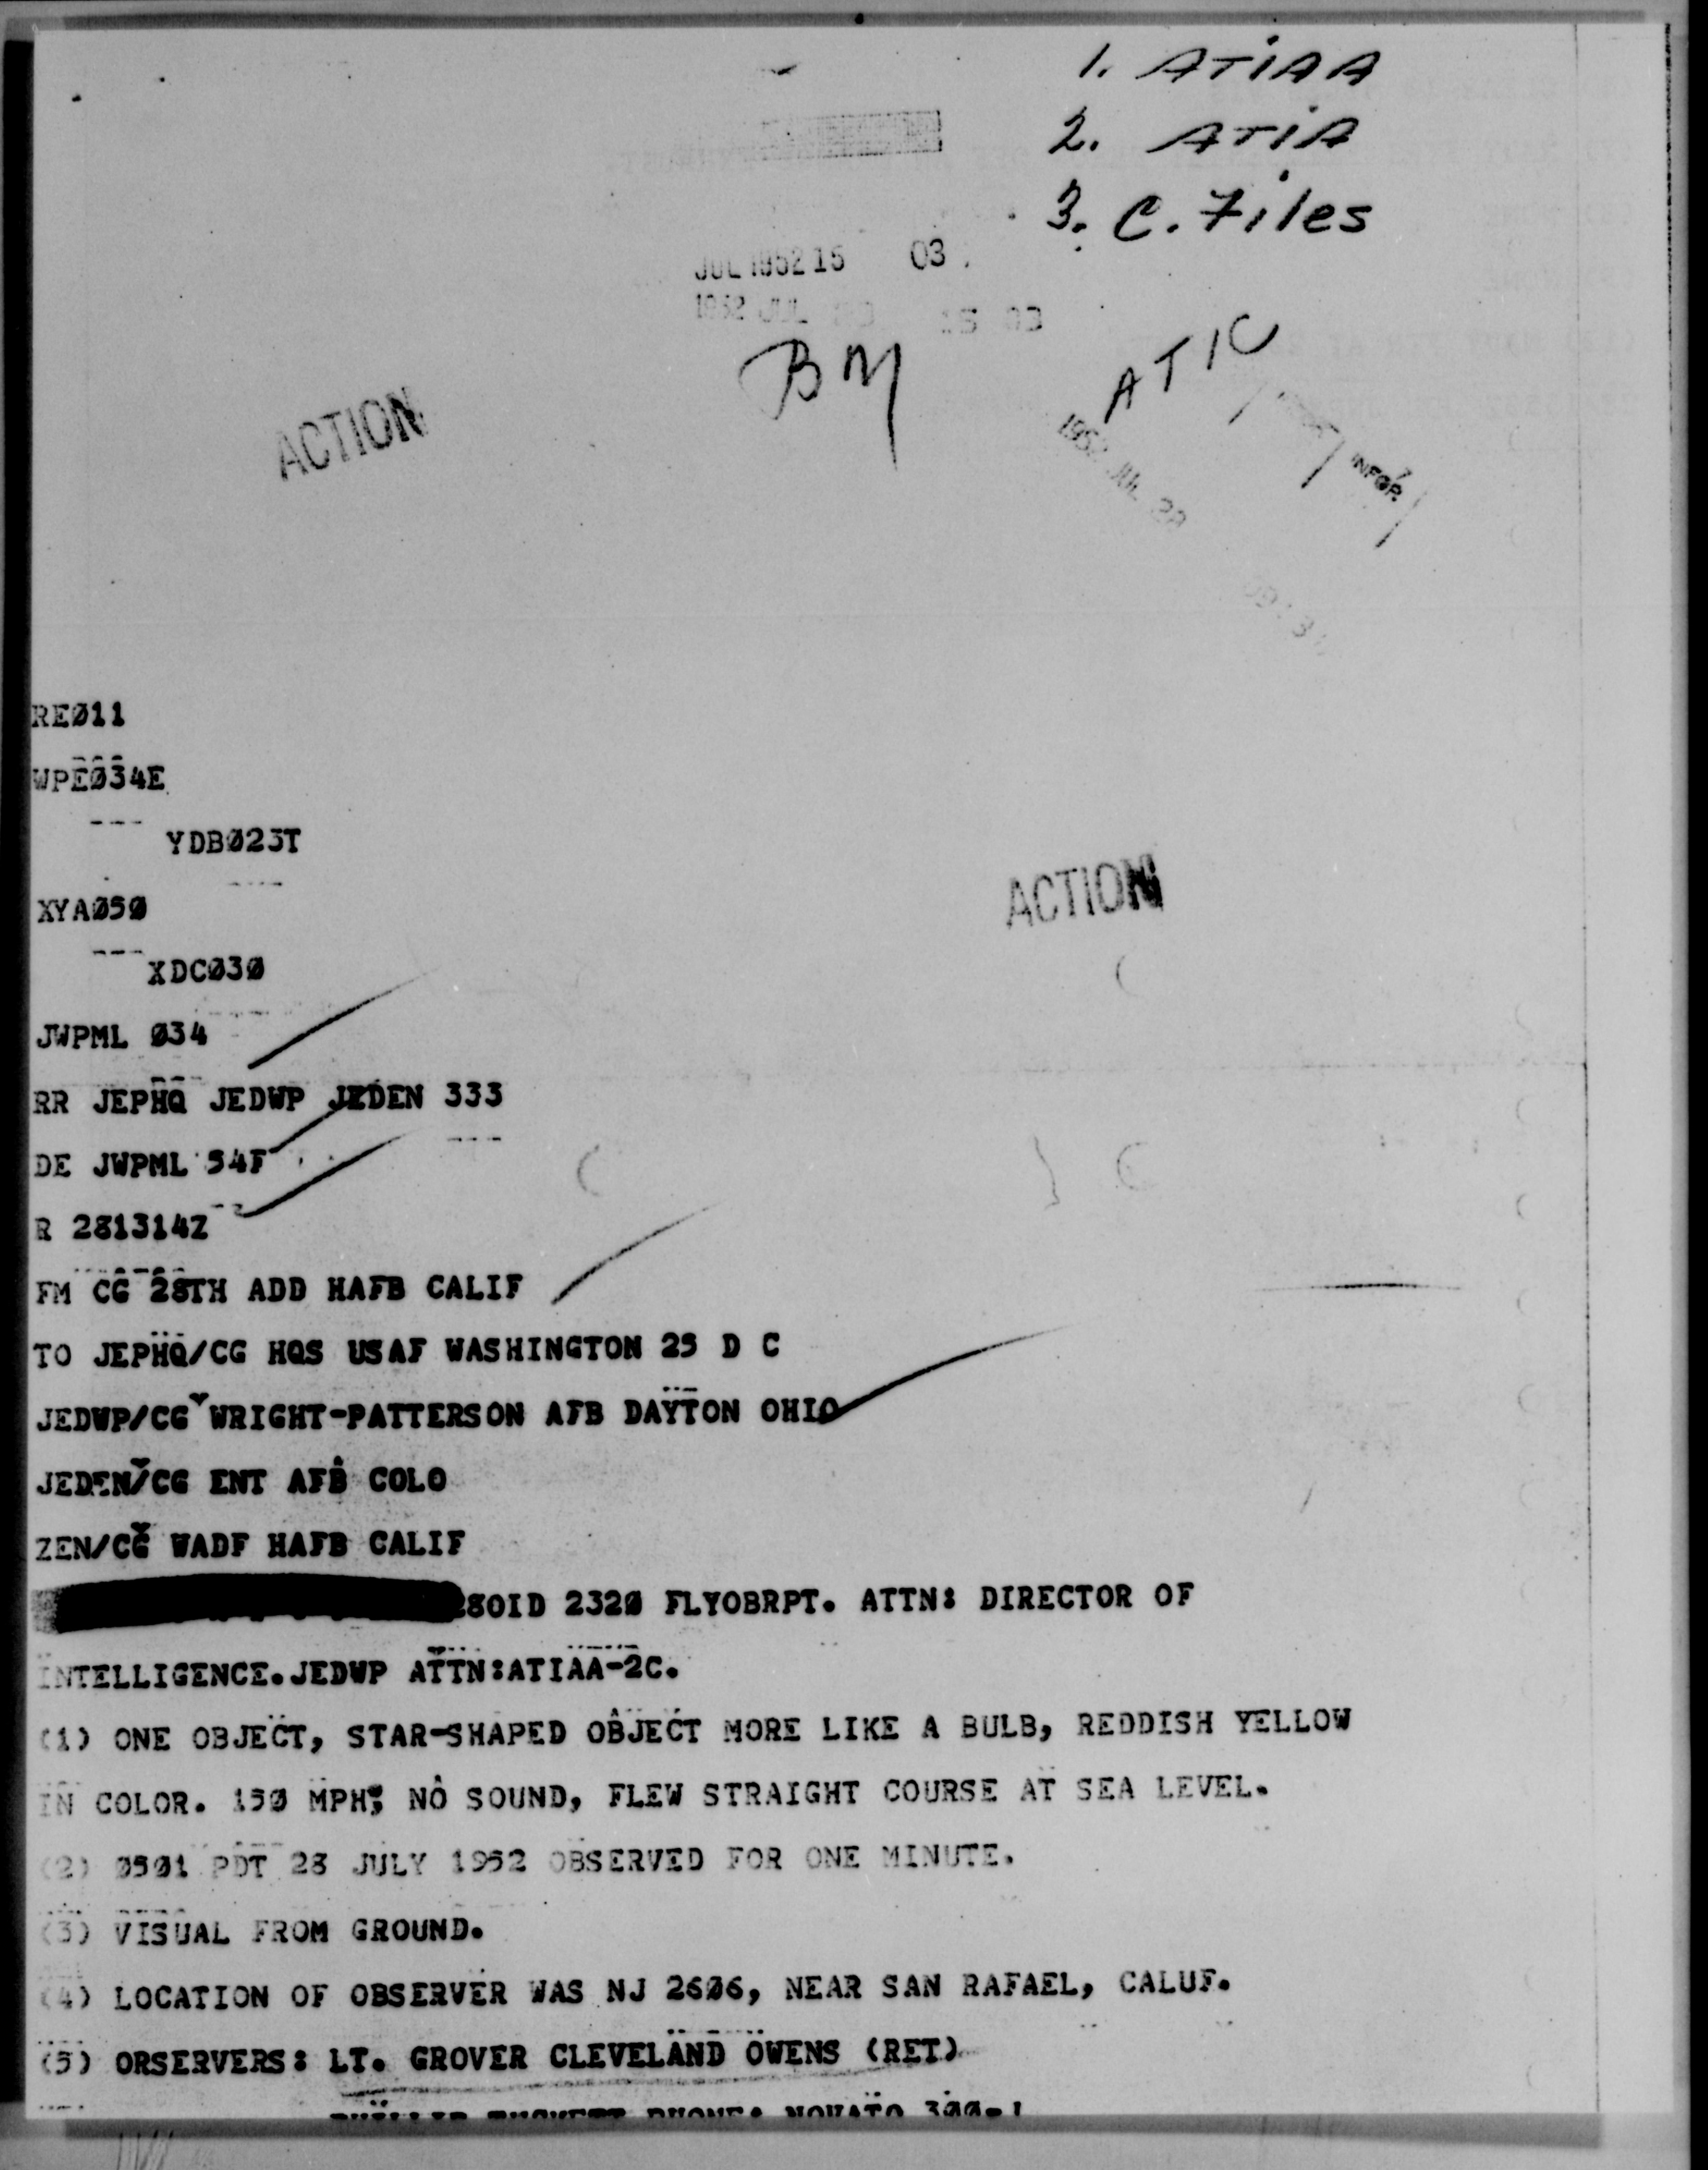 1. ATIAA
2. ATIA
3. C. Files
JUL 1952 15 03
1952 JUL 15 03
BM
ATIC
ACTION
1952 JUL 28
INFOR
REØ11
WPEØ34E
YDBØ23T
ACTION
XYAØ5Ø
XDCØ3Ø
JWPML Ø34
RR JEPHQ JEDWP JEDEN 333
DE JWPML 54F
R 281314Z
FM CG 28TH ADD HAFB CALIF
TO JEPHQ/CG HQS USAF WASHINGTON 25 D C
JEDWP/CG WRIGHT-PATTERSON AFB DAYTON OHIO
JEDEN/CG ENT AFB COLO
ZEN/CG WADF HAFB CALIF
28OID 232Ø FLYOBRPT. ATTN: DIRECTOR OF
INTELLIGENCE.JEDWP ATTN:ATIAA-2C.
(1) ONE OBJECT, STAR-SHAPED OBJECT MORE LIKE A BULB, REDDISH YELLOW
IN COLOR. 15Ø MPH; NO SOUND, FLEW STRAIGHT COURSE AT SEA LEVEL.
(2) Ø5Ø1 PDT 28 JULY 1952 OBSERVED FOR ONE MINUTE.
(3) VISUAL FROM GROUND.
(4) LOCATION OF OBSERVER WAS NJ 26Ø6, NEAR SAN RAFAEL, CALUF.
(5) ORSERVERS: LT. GROVER CLEVELAND OWENS (RET)
PHONE: NOVATO 3ØØ-J